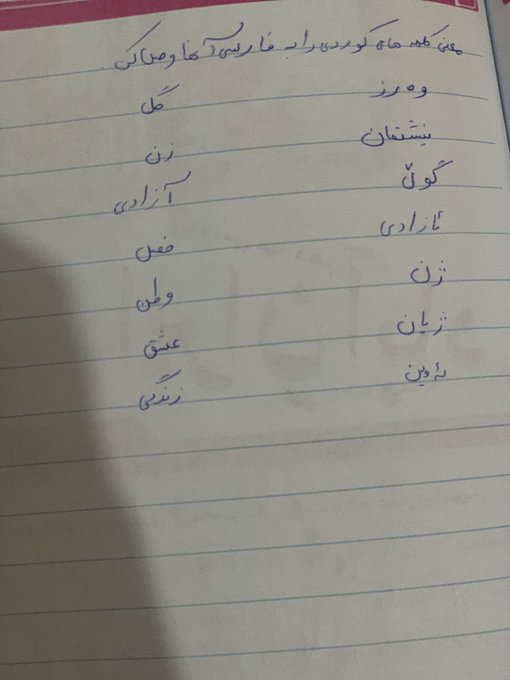 معنی کلمه های کوردی را به فارسی آنها وصل کن.
وەرز گل
نیشتمان زن
گوڵ آزادی
ئازادی فصل
ژن وطن
ژیان عشق
ئەوین زندگی